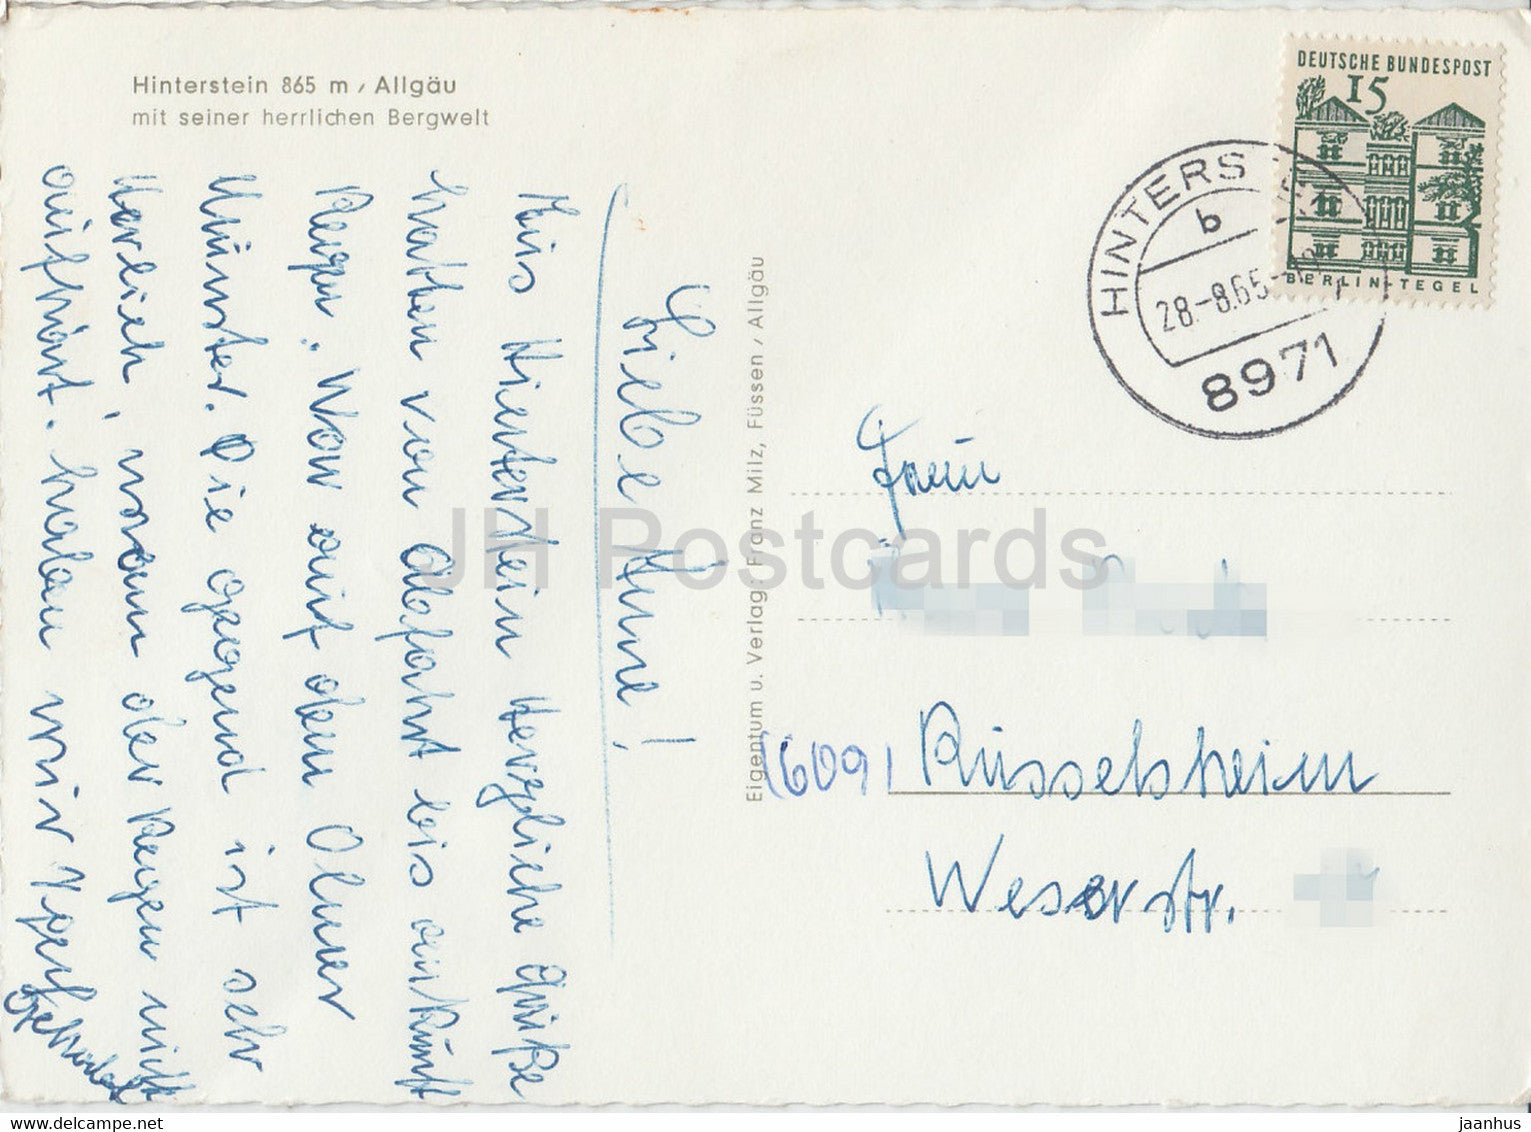 Hinterstein 865 m / Allgäu
mit seiner herrlichen Bergwelt
Liebe Anne!
Aus Hinterstein Herzliche Grüße
hatten von Abfahrt bis ankunft
Regen. War auf dem Olmer
Münster. Die gegend ist sehr
Herlich, wann der Regen nicht
aufhört. haben wir
Eigentum u. Verlag: Franz Milz, Füssen / Allgäu
DEUTSCHE BUNDESPOST
15
BERLIN-TEGEL
HINTERSTEIN
b
28.-8.65
8971
Fräulein
(609) Rüsselsheim
Weserstr.
JH Postcards
www.delcampe.net
jaanhus